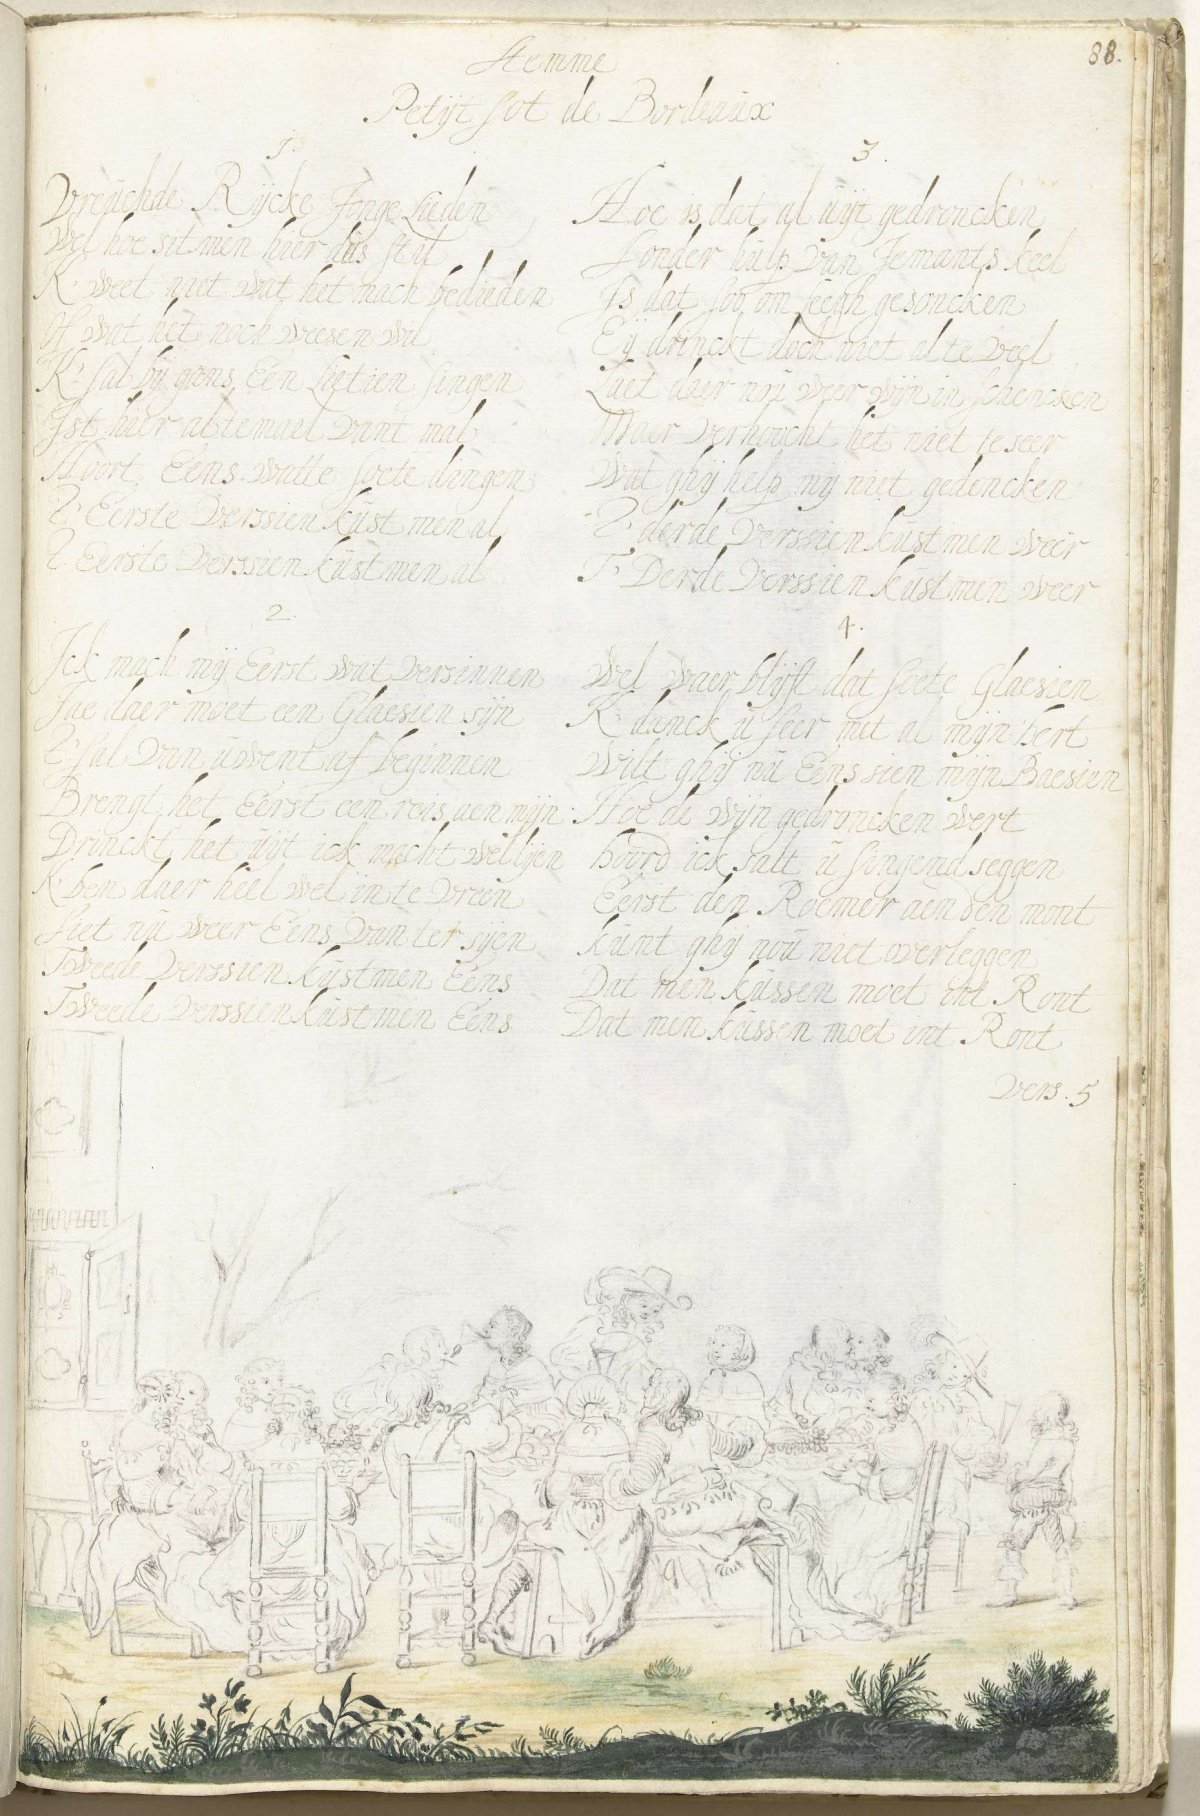 88.
Stemme
Petijt sot de Bordeaux
1.
Vreuchde Rijcke Jonge Lieden
Wel hoe sit men hier dus stil
K' weet niet wat het mach bedieden
Of wat het noch weesen wil
K' sal bij gans Een Lietien singen
Ist hier altemael vant mal
Hoort Eens watte soete dingen
T' Eerste Verssien kust men al
T' Eerste Verssien kust men al
2
Ick mach mij Eerst wat versinnen
Jae daer moet een Glaesien sijn
T' sal van u vent af beginnen
Brengt het Eerst een reis aen mijn
Drinckt het uijt ick macht wel lijen
K' ben daer heel wel in te vreen
Siet nu weer Eens van ter sijen
Tweede Verssien kust men Eens
Tweede Verssien kust men Eens
3.
Hoe is dat al uijt gedroncken
Sonder hulp van Jemants keel
Is dat soo om leegh gesoncken
Eij drinckt doch niet al te veel
Laet daer nu weer wijn in schencken
Maer verhoocht het niet te seer
Wat ghij help mij niet gedencken
T' derde Verssien kust men weer
T' Derde Verssien kust men weer
4.
Wel waer blijft dat soete Glaesien
K' danck u seer met al mijn hert
Wilt ghij nu Eens sien mijn Baesien
Hoe de wijn gedroncken wert
hoord ick salt u singend seggen
Eerst den Roemer aen den mont
kunt ghij nou niet overleggen
Dat men kussen moet int Ront
Dat men kussen moet int Ront
Vers. 5